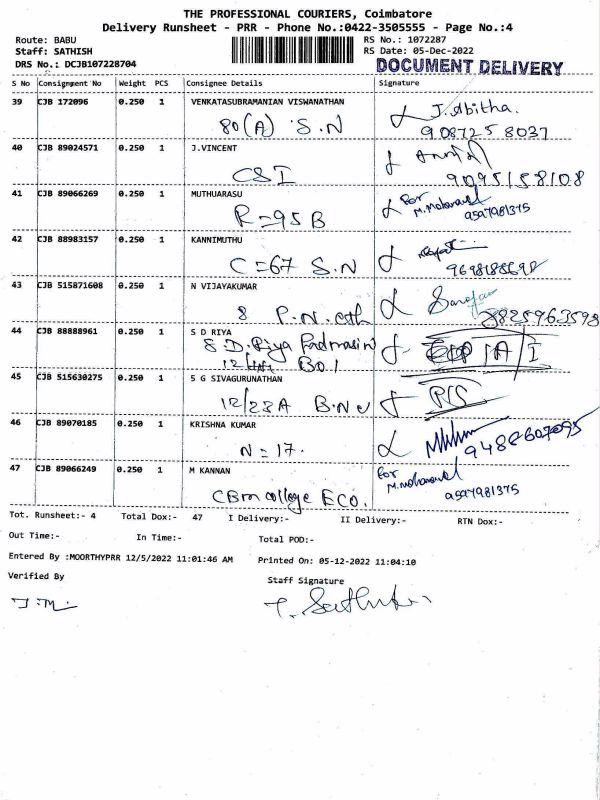 THE PROFESSIONAL COURIERS, Coimbatore
Delivery Runsheet - PRR - Phone No.:0422-3505555 - Page No.:4
Route: BABU RS No.: 1072287
Staff: SATHISH RS Date: 05-Dec-2022
DRS No.: DCJB107228704 DOCUMENT DELIVERY
S No Consignment No Weight PCS Consignee Details Signature
39 CJB 172096 0.250 1 VENKATASUBRAMANIAN VISWANATHAN J. Abitha.
80(A) S.N 9087258037
40 CJB 89024571 0.250 1 J.VINCENT
CSI 9095158108
41 CJB 89066269 0.250 1 MUTHUARASU For
R=95B 9597981375
42 CJB 88983157 0.250 1 KANNIMUTHU
C=67 S.N
43 CJB 515871608 0.250 1 N VIJAYAKUMAR
8 P.N. 8825963598
44 CJB 88888961 0.250 1 S D RIYA
S.D. Riya
45 CJB 515630275 0.250 1 S G SIVAGURUNATHAN
12/28A
46 CJB 89070185 0.250 1 KRISHNA KUMAR
N = 17. 9488607095
47 CJB 89066249 0.250 1 M KANNAN For
CBM college ECO. 9597981375
Tot. Runsheet:- 4 Total Dox:- 47 I Delivery:- II Delivery:- RTN Dox:-
Out Time:- In Time:- Total POD:-
Entered By :MOORTHYPRR 12/5/2022 11:01:46 AM Printed On: 05-12-2022 11:04:10
Verified By Staff Signature